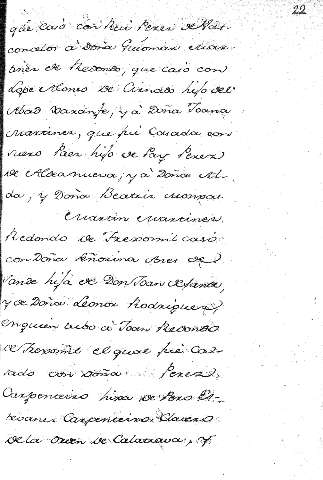 22
que casó con Rui Perez de Vas-
concelos à Doña Guiomar Mar-
tinez de Redondo, que casó con
Lope Alonso de                hijo del
Abad            , y à Doña Joana
Martinez, que fué Casada con
      Paez hijo de Pay Perez
de Aldanueva, y à Doña Al-
da, y Doña Beatriz monjas
Martin Martinez
Redondo de Frexomil casó
con Doña             Ares de
Sande hija de Don Joan de Sande,
y de Doña Leonor Rodriguez,
en quien ubo à Joan Redondo
de Frexomil el qual fué Ca-
sado con Doña       Perez
Carpenteiro hixa de Pero Es-
tevanez Carpenteiro Clavero
de la Orden de Calatrava, y